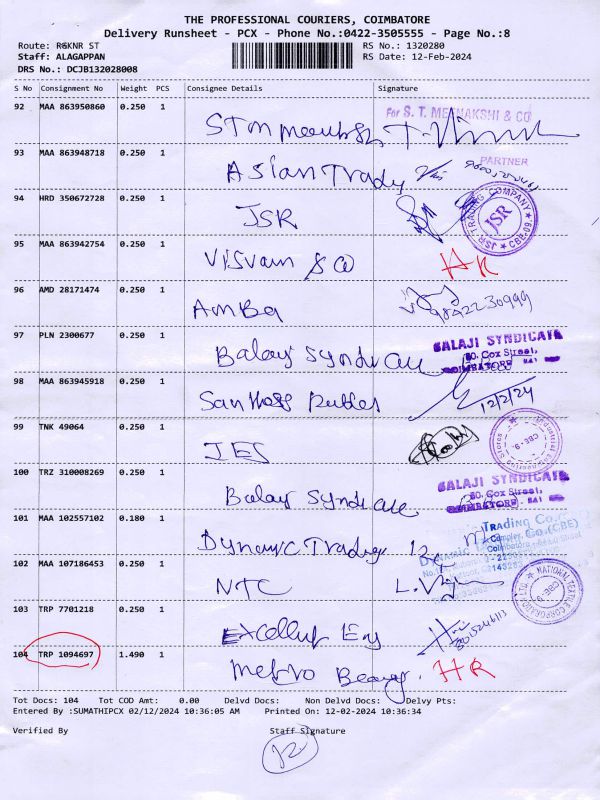 THE PROFESSIONAL COURIERS, COIMBATORE
Delivery Runsheet - PCX - Phone No.:0422-3505555 - Page No.:8
Route: R6KNR ST RS No.: 1320280
Staff: ALAGAPPAN RS Date: 12-Feb-2024
DRS No.: DCJB132028008
S No Consignment No Weight PCS Consignee Details Signature
92 MAA 863950860 0.250 1
For S. T. MEENAKSHI & CO
93 MAA 863948718 0.250 1
Asian Trady PARTNER
94 HRD 350672728 0.250 1
JSR JSR TRADING COMPANY ★ CBE-09 ★ JSR
95 MAA 863942754 0.250 1
Visvam & Co HR
96 AMD 28171474 0.250 1
Amba 9842230999
97 PLN 2300677 0.250 1
Balaji Syndicate BALAJI SYNDICATE
80, Cox Street,
COIMBATORE - 641
98 MAA 863945918 0.250 1
12/2/24
99 TNK 49064 0.250 1
JES CBE-9
100 TRZ 310008269 0.250 1
Balaji Syndicate BALAJI SYNDICATE
80, Cox Street,
COIMBATORE - 641
101 MAA 102557102 0.180 1
Dynamic Trading
102 MAA 107186453 0.250 1
NTC NATIONAL TEXTILE CORPORATION LTD. CBE-9
103 TRP 7701218 0.250 1
Excellent Eng
104 TRP 1094697 1.490 1
Metro Bearings HR
Tot Docs: 104 Tot COD Amt: 0.00 Delvd Docs: Non Delvd Docs: Delvy Pts:
Entered By :SUMATHIPCX 02/12/2024 10:36:05 AM Printed On: 12-02-2024 10:36:34
Verified By Staff Signature